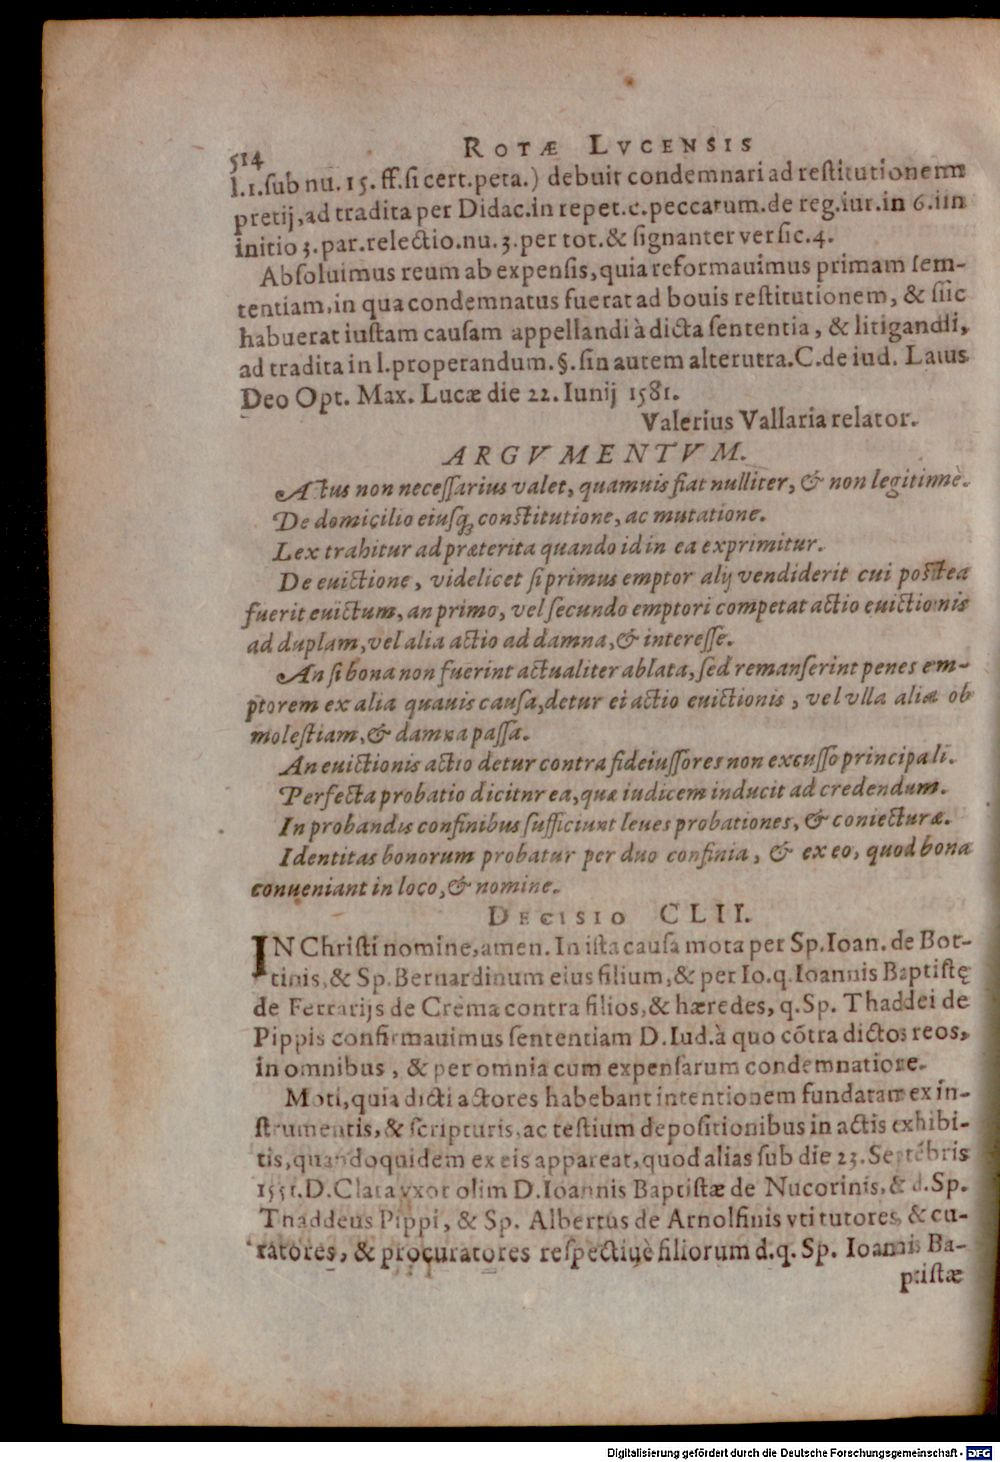 514 ROTÆ LVCENSIS
l.1.sub nu. 15. ff.si cert.peta.) debuit condemnari ad restitutionem
pretij, ad tradita per Didac.in repet.c.peccatum.de reg.iur.in 6.in
initio 3.par.relectio.nu.3.per tot.& signanter versic.4.
Absoluimus reum ab expensis, quia reformauimus primam sen-
tentiam, in qua condemnatus fuerat ad bouis restitutionem, & sic
habuerat iustam causam appellandi à dicta sententia, & litigandi,
ad tradita in l.properandum.§.sin autem alterutra.C.de iud. Laus
Deo Opt. Max. Lucæ die 22. Iunij 1581.
Valerius Vallaria relator.
ARGVMENTVM.
Actus non necessarius valet, quamuis fiat nulliter, & non legitimè.
De domicilio eiusq; constitutione, ac mutatione.
Lex trahitur ad præterita quando id in ea exprimitur.
De euictione, videlicet si primus emptor alij vendiderit cui postea
fuerit euictum, an primo, vel secundo emptori competat actio euictionis
ad duplam, vel alia actio ad damna, & interesse.
An si bona non fuerint actualiter ablata, sed remanserint penes em-
ptorem ex alia quauis causa, detur ei actio euictionis, vel vlla alia ob
molestiam, & damna passa.
An euictionis actio detur contra fideiussores non excusso principali.
Perfecta probatio dicitnr ea, quæ iudicem inducit ad credendum.
In probandis confinibus sufficiunt leues probationes, & coniecturæ.
Identitas bonorum probatur per duo confinia, & ex eo, quod bona
conueniant in loco, & nomine.
DECISIO CLII.
IN Christi nomine, amen. In ista causa mota per Sp. Ioan. de Bot-
tinis, & Sp. Bernardinum eius filium, & per Io.q. Ioannis Baptistę
de Ferrarijs de Crema contra filios, & hæredes, q.Sp. Thaddei de
Pippis confirmauimus sententiam D. Iud.à quo cōtra dictos reos,
in omnibus, & per omnia cum expensarum condemnatione.
Moti, quia dicti actores habebant intentionem fundatam ex in-
strumentis, & scripturis, ac testium depositionibus in actis exhibi-
tis, quandoquidem ex eis appareat, quod alias sub die 23. Septēbris
1551. D. Clara vxor olim D. Ioannis Baptistæ de Nucorinis, & d. Sp.
Thaddeus Pippi, & Sp. Albertus de Arnolfinis vti tutores, & cu-
ratores, & procuratores respectiuè filiorum d.q. Sp. Ioannis Ba-
ptistæ
Digitalisierung gefördert durch die Deutsche Forschungsgemeinschaft - DFG